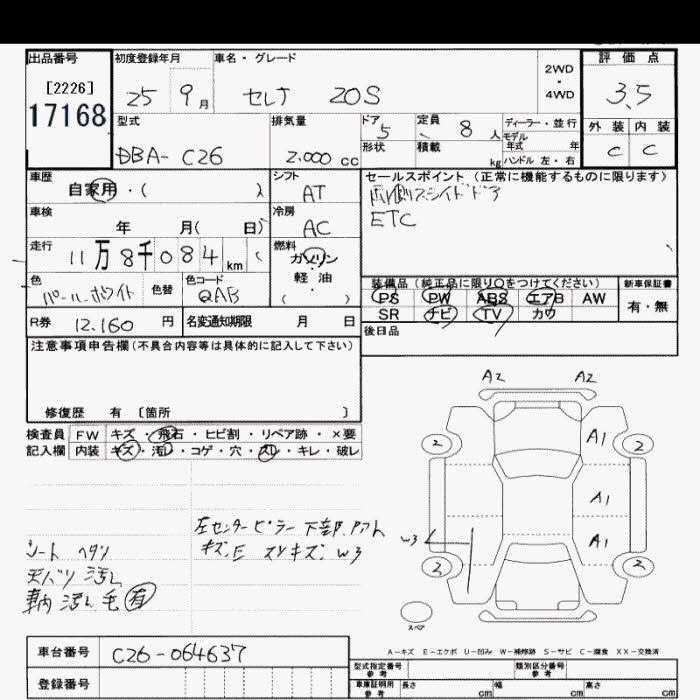 出品番号 初度登録年月 車名・グレード 2WD・4WD 評価点
[2226] 25 9月 セレナ 20S 3.5
17168
型式 排気量 ドア 5 定員 8人 ディーラー・並行 外装 内装
DBA-C26 2.000cc 形状 積載 kg モデル年式 年 ハンドル 左・右 C C
車歴 シフト セールスポイント (正常に機能するものに限ります)
自家用・( ) AT 両側スライドドア
車検 冷房 ETC
年 月( 日) AC
走行 11万8千084km ( 燃料 ガソリン・軽油 ( ・ )
色 色替 色コード 装備品 (純正品に限り○をつけてください) 新車保証書
パールホワイト QAB PS PW ABS エアB AW 有・無
R券 12.160円 名変通知期限 月 日 SR ナビ TV カワ
注意事項申告欄(不具合内容等は具体的に記入して下さい) 後日品
修復歴 有 〔箇所 〕
検査員 FW キズ・飛石・ヒビ割・リペア跡・×要
記入欄 内装 キズ・汚レ・コゲ・穴・スレ・キレ・破レ
A2 A2
2 A1 2
A1
W3 A1
2 2
スペア
左センターピラー下部.アト
キズ,E スリキズ,W3
シート ヘタリ
天バリ 汚レ
車内 汚レ 毛 有
A-キズ E-エクボ U-凹み W-補修跡 S-サビ C-腐食 XX-交換済
車台番号 C26-064637 型式指定番号 参考 類別区分番号 参考
登録番号 車庫証明用 参考 長さ cm 幅 cm 高さ cm